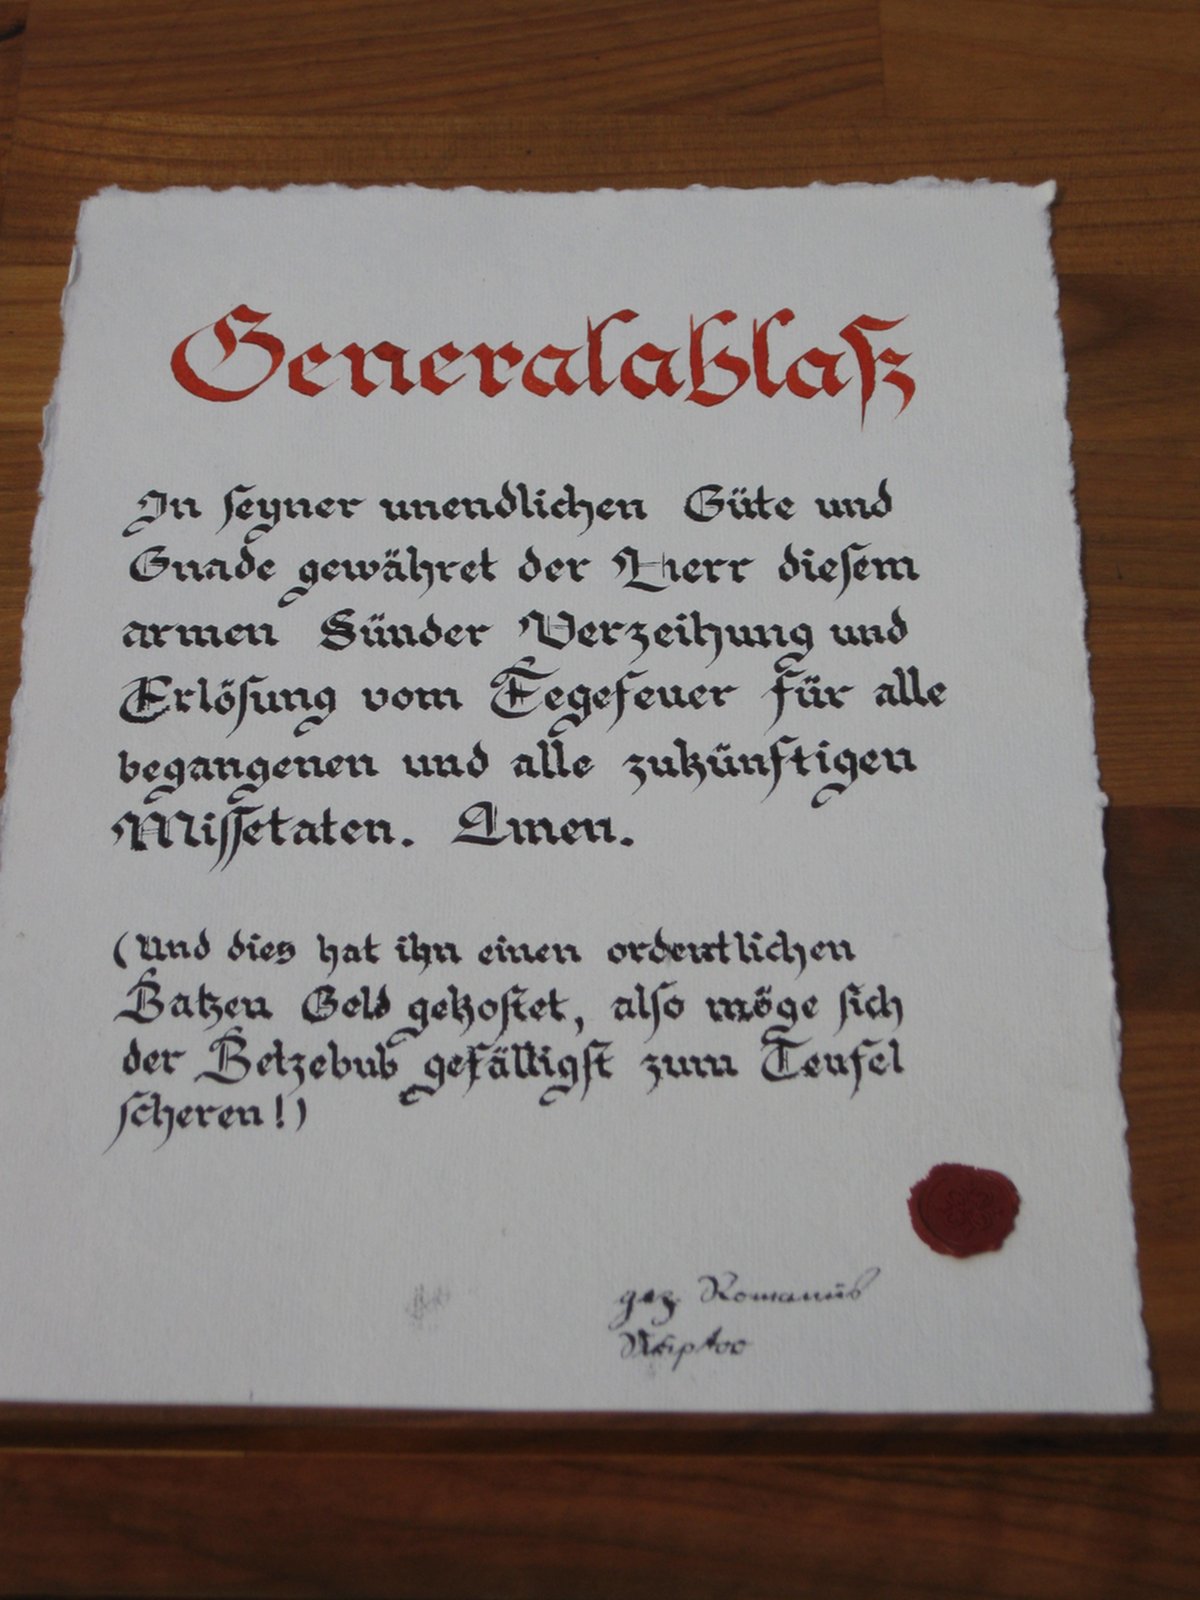 Generalablaß
In seyner unendlichen Güte und
Gnade gewähret der Herr diesem
armen Sünder Verzeihung und
Erlösung vom Fegefeuer für alle
begangenen und alle zukünftigen
Missetaten. Amen.
(Und dies hat ihn einen ordentlichen
Batzen Geld gekostet, also möge sich
der Belzebub gefälligst zum Teufel
scheren!)
gez Romanus
Skriptor